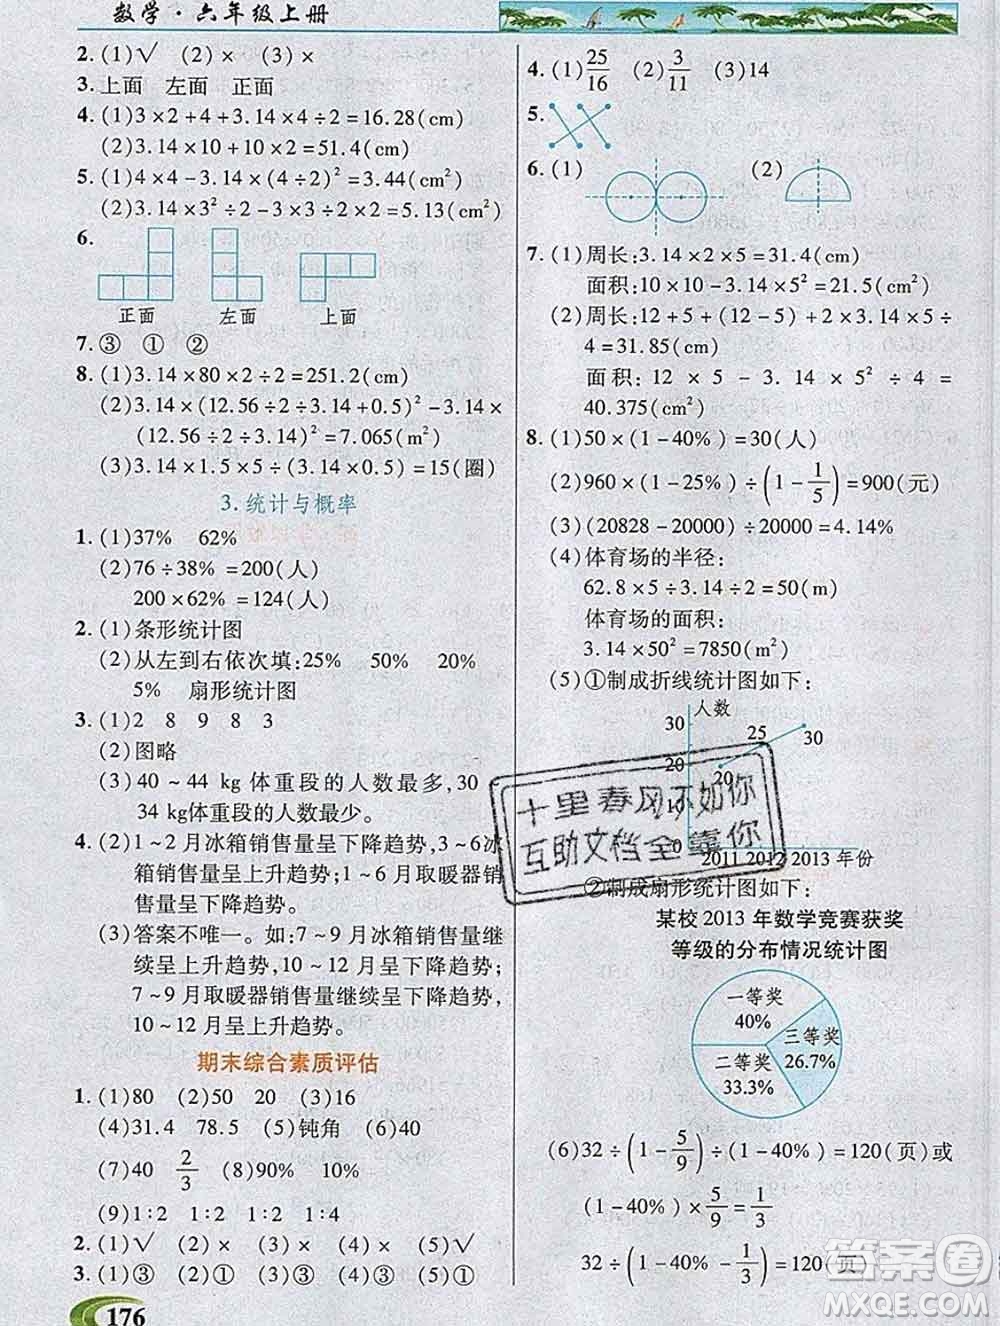 数学·六年级上册
2. (1)√ (2)× (3)×
3. 上面 左面 正面
4. (1)3×2+4+3.14×4÷2=16.28(cm)
(2)3.14×10+10×2=51.4(cm)
5. (1)4×4-3.14×(4÷2)²=3.44(cm²)
(2)3.14×3²÷2-3×3÷2×2=5.13(cm²)
6.
正面 左面 上面
7. ③ ① ②
8. (1)3.14×80×2÷2=251.2(cm)
(2)3.14×(12.56÷2÷3.14+0.5)²-3.14×
(12.56÷2÷3.14)²=7.065(m²)
(3)3.14×1.5×5÷(3.14×0.5)=15(圈)
3.统计与概率
1. (1)37% 62%
(2)76÷38%=200(人)
200×62%=124(人)
2. (1)条形统计图
(2)从左到右依次填:25% 50% 20%
5% 扇形统计图
3. (1)2 8 9 8 3
(2)图略
(3)40~44 kg体重段的人数最多,30~
34 kg体重段的人数最少。
4. (2)1~2月冰箱销售量呈下降趋势,3~6冰
箱销售量呈上升趋势;1~6月取暖器销
售量呈下降趋势。
(3)答案不唯一。如:7~9月冰箱销售量继
续呈上升趋势,10~12月呈下降趋势;
7~9月取暖器销售量继续呈下降趋势,
10~12月呈上升趋势。
期末综合素质评估
1. (1)80 (2)50 20 (3)16
(4)31.4 78.5 (5)钝角 (6)40
(7)40 2/3 (8)90% 10%
(9)1∶2 1∶2 1∶2 1∶4
2. (1)√ (2)× (3)× (4)× (5)√
3. (1)③ (2)① (3)③ (4)③ (5)①
176
4. (1)25/16 (2)3/11 (3)14
5.
6. (1) (2)
7. (1)周长:3.14×2×5=31.4(cm)
面积:10×10-3.14×5²=21.5(cm²)
(2)周长:12+5+(12-5)+2×3.14×5÷
4=31.85(cm)
面积:12×5-3.14×5²÷4=
40.375(cm²)
8. (1)50×(1-40%)=30(人)
(2)960×(1-25%)÷(1-1/5)=900(元)
(3)(20828-20000)÷20000=4.14%
(4)体育场的半径:
62.8×5÷3.14÷2=50(m)
体育场的面积:
3.14×50²=7850(m²)
(5)①制成折线统计图如下:
人数
30
20
10
0
20 25 30
2011 2012 2013 年份
十里春风不如你
互助文档全靠你
②制成扇形统计图如下:
某校2013年数学竞赛获奖
等级的分布情况统计图
一等奖
40%
三等奖
26.7%
二等奖
33.3%
(6)32÷(1-5/9)÷(1-40%)=120(页)或
(1-40%)×5/9=1/3
32÷(1-40%-1/3)=120(页)
答案圈
MXQE.COM